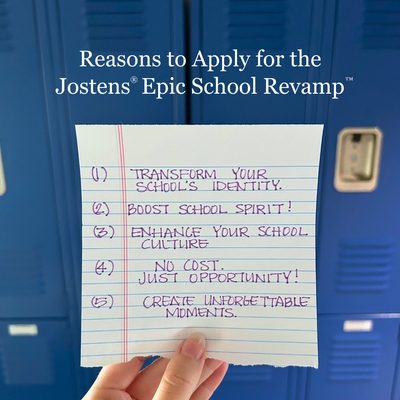 Reasons to Apply for the
Jostens® Epic School Revamp™
(1) TRANSFORM YOUR
SCHOOL'S IDENTITY.
(2) BOOST SCHOOL SPIRIT!
(3) ENHANCE YOUR SCHOOL
CULTURE
(4) NO COST.
JUST OPPORTUNITY!
(5) CREATE UNFORGETTABLE
MOMENTS.